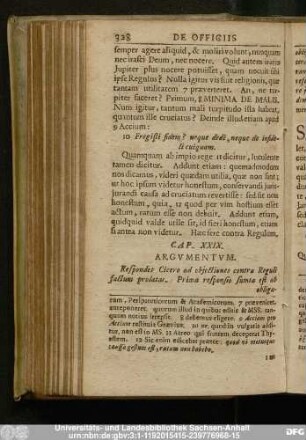 328 DE OFFICIIS
semper agere aliquid, & moliri volunt, nunquam
nec irasci Deum, nec nocere. Quid autem iratus
Jupiter plus nocere potuisset, quam nocuit sibi
ipse Regulus? Nulla igitur vis fuit religionis, quæ
tantam utilitatem 7 præverteret. An, ne tur
piter faceret? Primum, 8 MINIMA DE MALIS.
Num igitur, tantum mali turpitudo ista habuit,
quantum ille cruciatus? Deinde illud etiam apud
9 Accium:
10 Fregisti fidem? neque dedi, neque do infide
li cuiquam.
Quamquam ab impio rege 11 dicitur, luculente
tamen dicitur. Addunt etiam: quemadmodum
nos dicamus, videri quædam utilia, quæ non sint;
ut hoc ipsum videtur honestum, conservandi juris
jurandi causa ad cruciatum revertisse: sed fit non
honestum, quia, 12 quod per vim hostium esset
actum, ratum esse non debuit. Addunt etiam,
quidquid valde utile sit, id fieri honestum, etiam
si antea non videretur. Hæc fere contra Regulum,
CAP. XXIX.
ARGVMENTVM.
Respondet Cicero ad objectiones contra Reguli
factum prolatas. Prima responsio sumta est ab
obliga-
Universitäts- und Landesbibliothek Sachsen-Anhalt
urn:nbn:de:gbv:3:1-1192015415-239776960-15
DFG